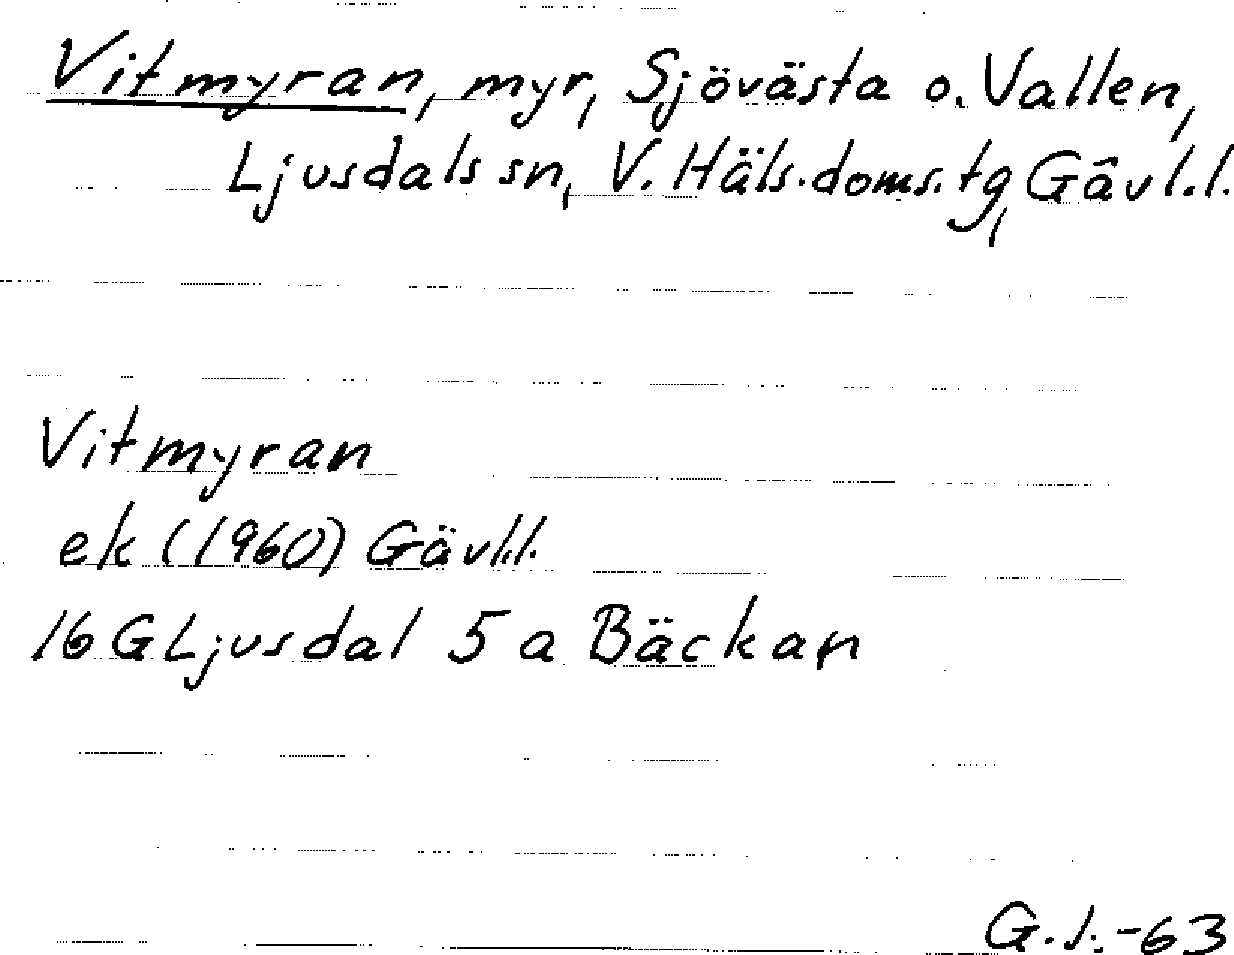 Vitmyran, myr, Sjövästa o. Vallen,
Ljusdals sn, V. Häls. doms. tg, Gävl.l.
Vitmyran
ek (1960) Gävl.l.
16 G Ljusdal 5 a Bäckan
G.J.-63